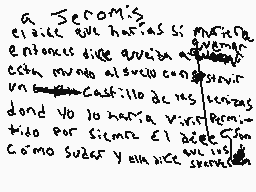 a Jeromis
el dice que harias si muriera
entonces dice queiza a quemar
esta mundo al suelo construir
un castillo de las cenizas
dond yo lo haria vivir permi
tido por siemre El dice son
como sudar y ella dice que los